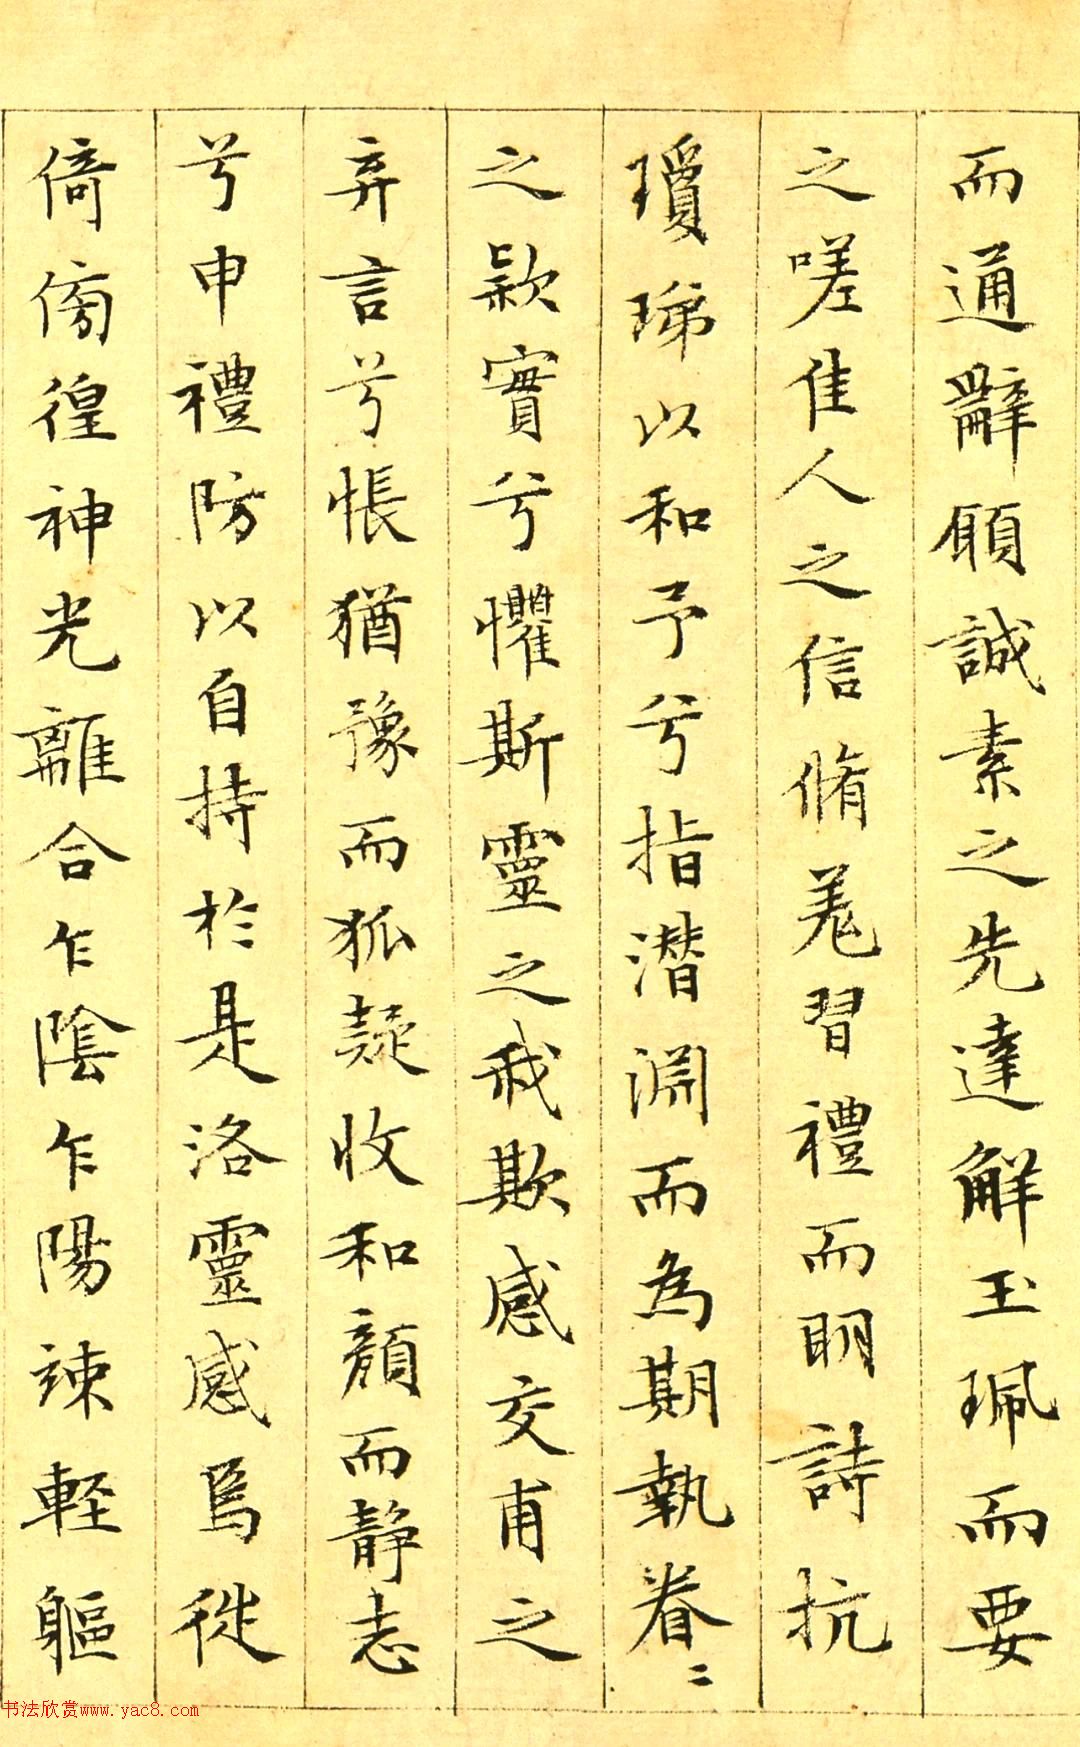 而通辭願誠素之先達解玉珮而要
之嗟佳人之信脩羌習禮而明詩抗
瓊珶以和予兮指潛淵而為期執眷〻
之款實兮懼斯靈之我欺感交甫之
弃言兮悵猶豫而狐疑收和顏而静志
兮申禮防以自持於是洛靈感焉徙
倚傍徨神光離合乍陰乍陽竦輕軀
书法欣赏www.yac8.com